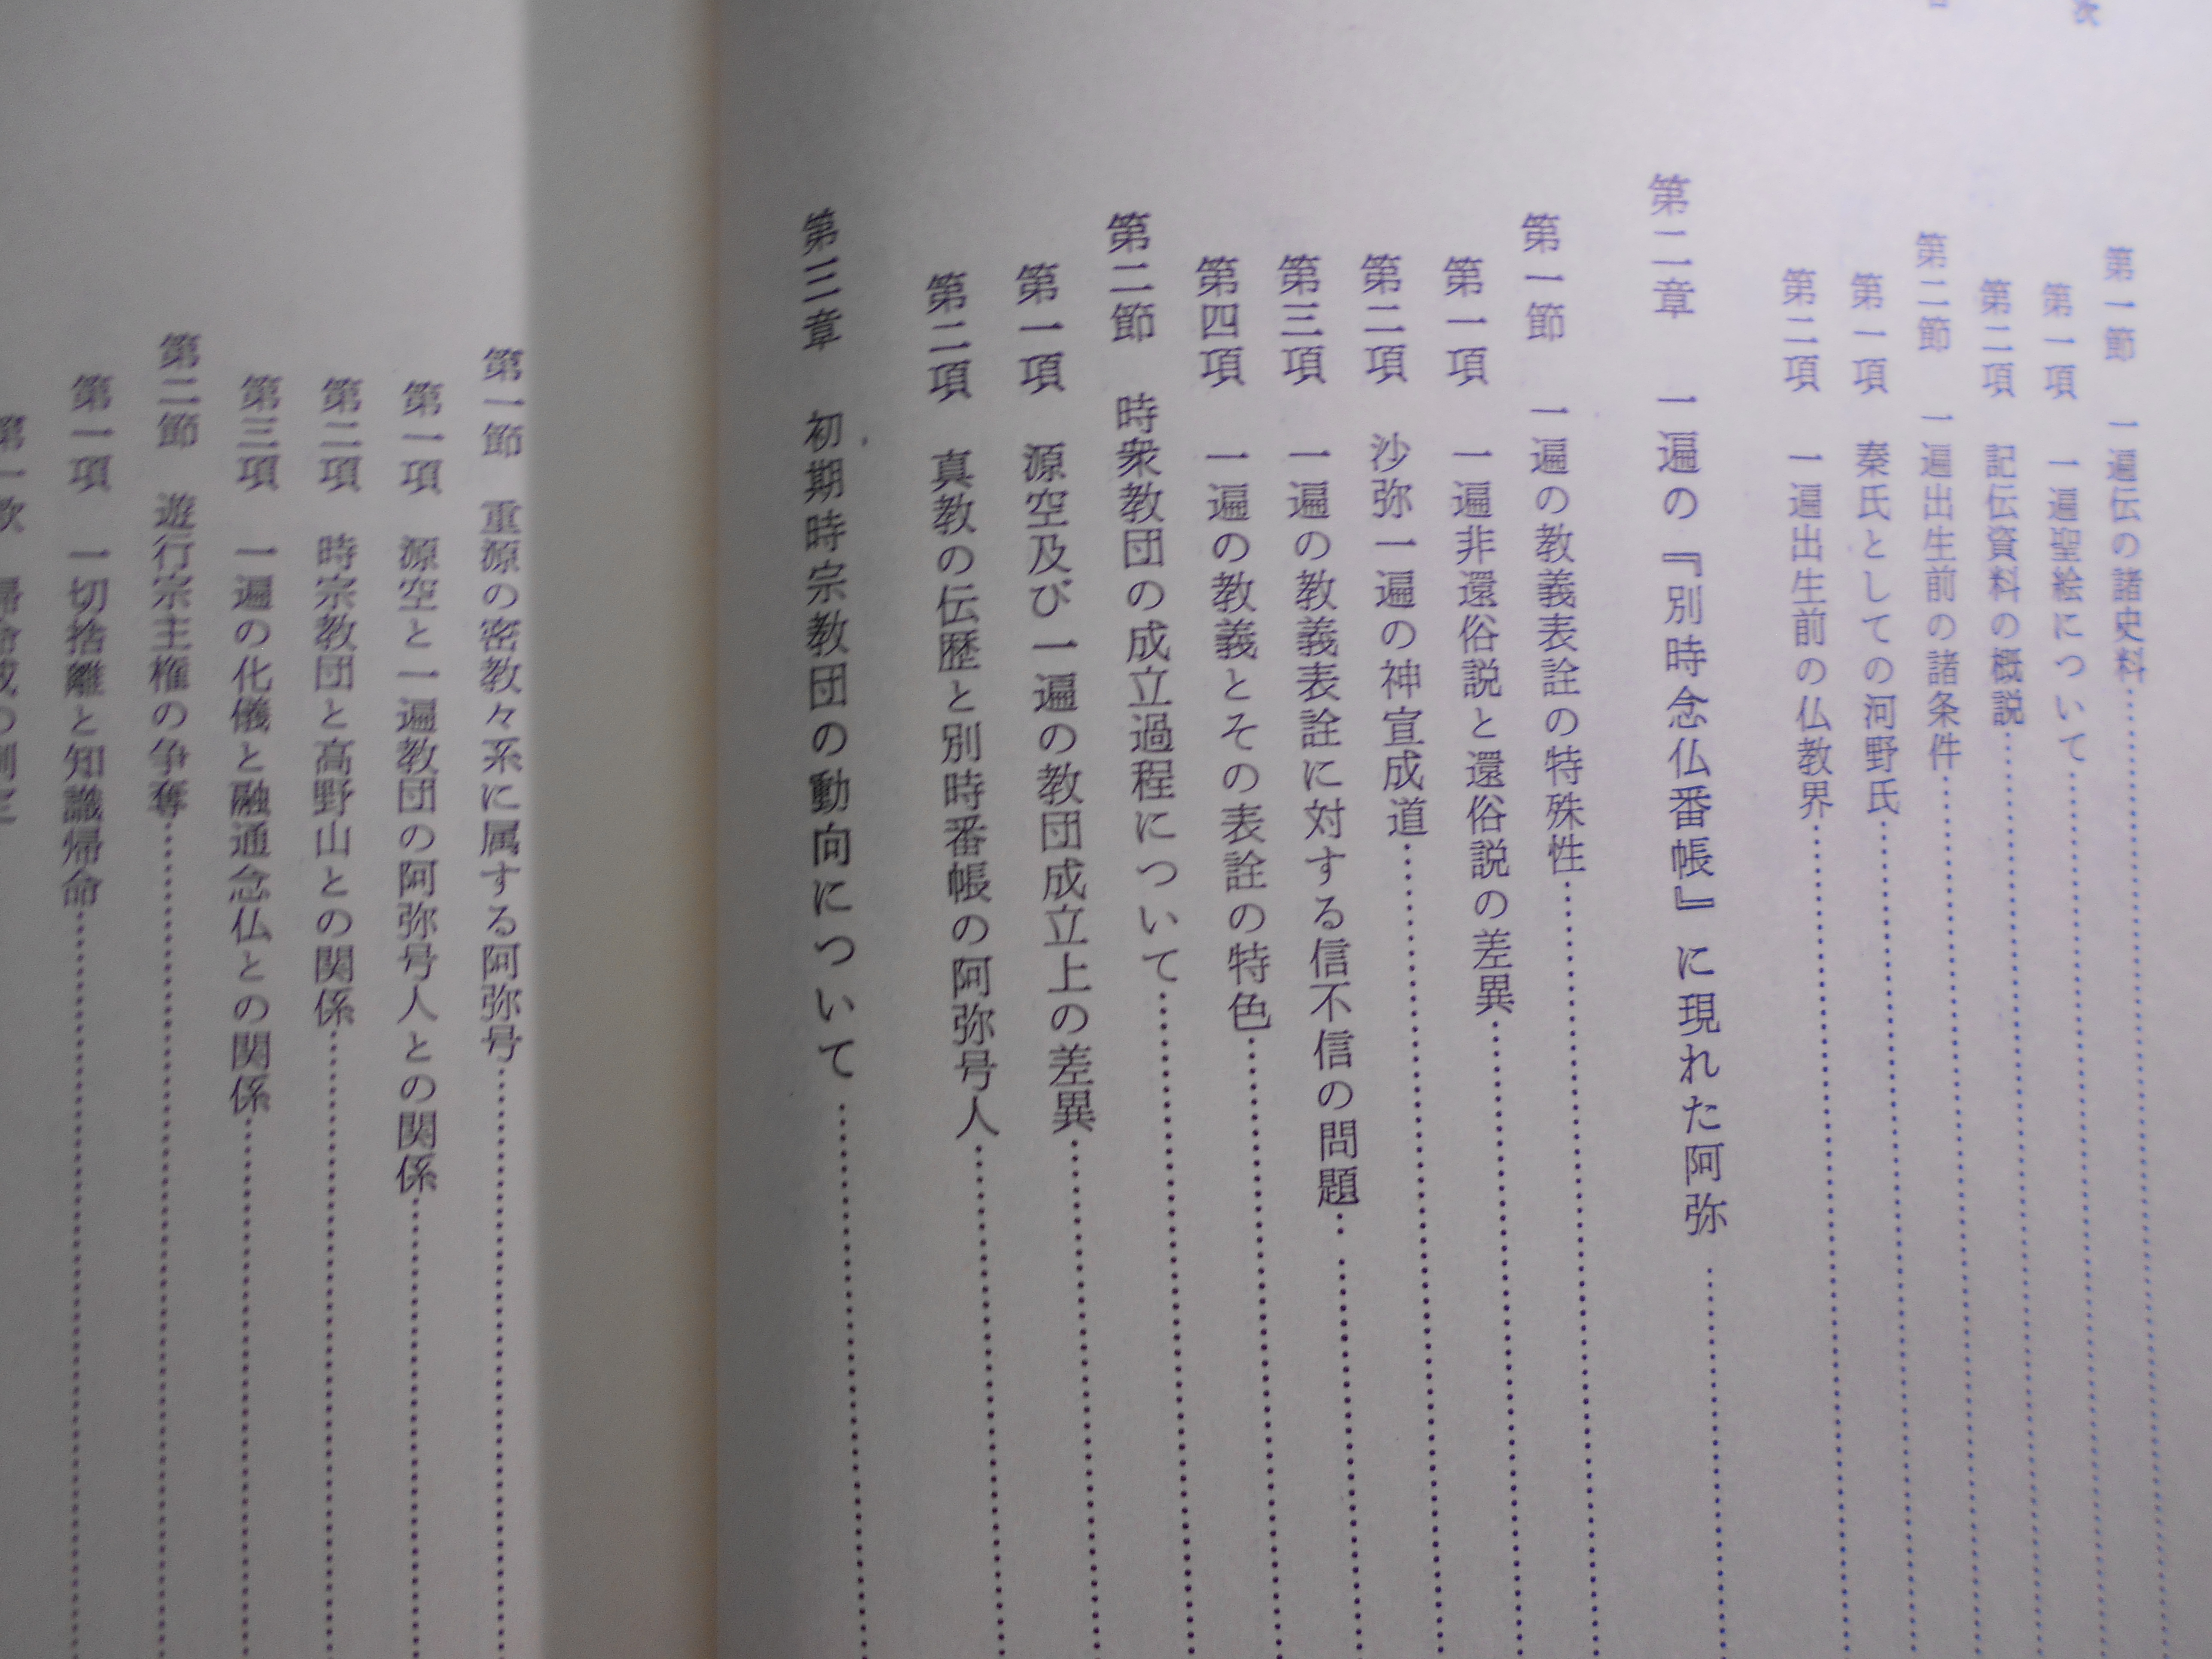 第一節　一遍伝の諸史料
第一項　一遍聖絵について
第二項　記伝資料の概説
第二節　一遍出生前の諸条件
第一項　秦氏としての河野氏
第二項　一遍出生前の仏教界
第二章　一遍の『別時念仏番帳』に現れた阿弥
第一節　一遍の教義表詮の特殊性
第一項　一遍非還俗説と還俗説の差異
第二項　沙弥一遍の神宣成道
第三項　一遍の教義表詮に対する信不信の問題
第四項　一遍の教義とその表詮の特色
第二節　時衆教団の成立過程について
第一項　源空及び一遍の教団成立上の差異
第二項　真教の伝歴と別時番帳の阿弥号人
第三章　初期時宗教団の動向について
第一節　重源の密教々系に属する阿弥号
第一項　源空と一遍教団の阿弥号人との関係
第二項　時宗教団と高野山との関係
第三項　一遍の化儀と融通念仏との関係
第二節　遊行宗主権の争奪
第一項　一切捨離と知識帰命